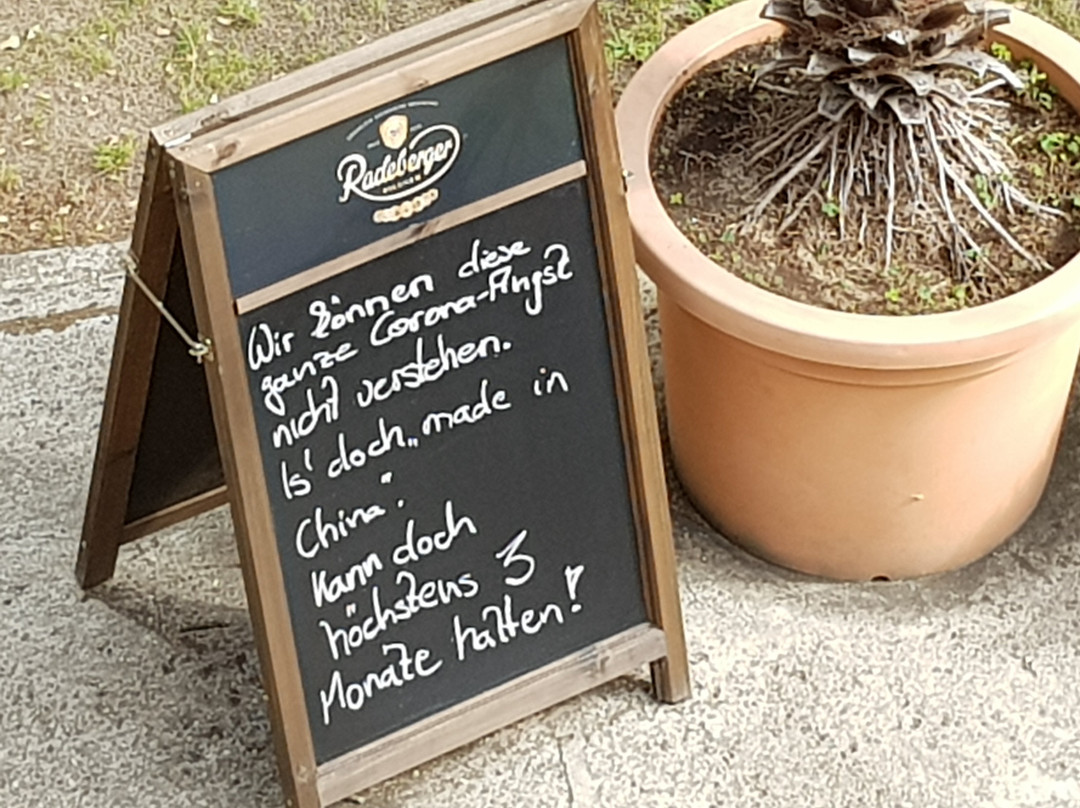 Radeberger
PILSNER
Wir können diese
ganze Corona-Angst
nicht verstehen.
Is' doch „made in
China".
Kann doch
höchstens 3
Monate halten!